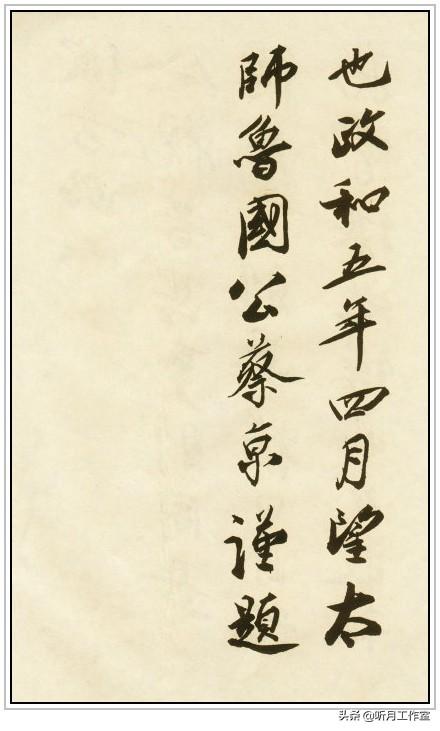 也政和五年四月望太
師魯國公蔡京謹題
头条 @听月工作室